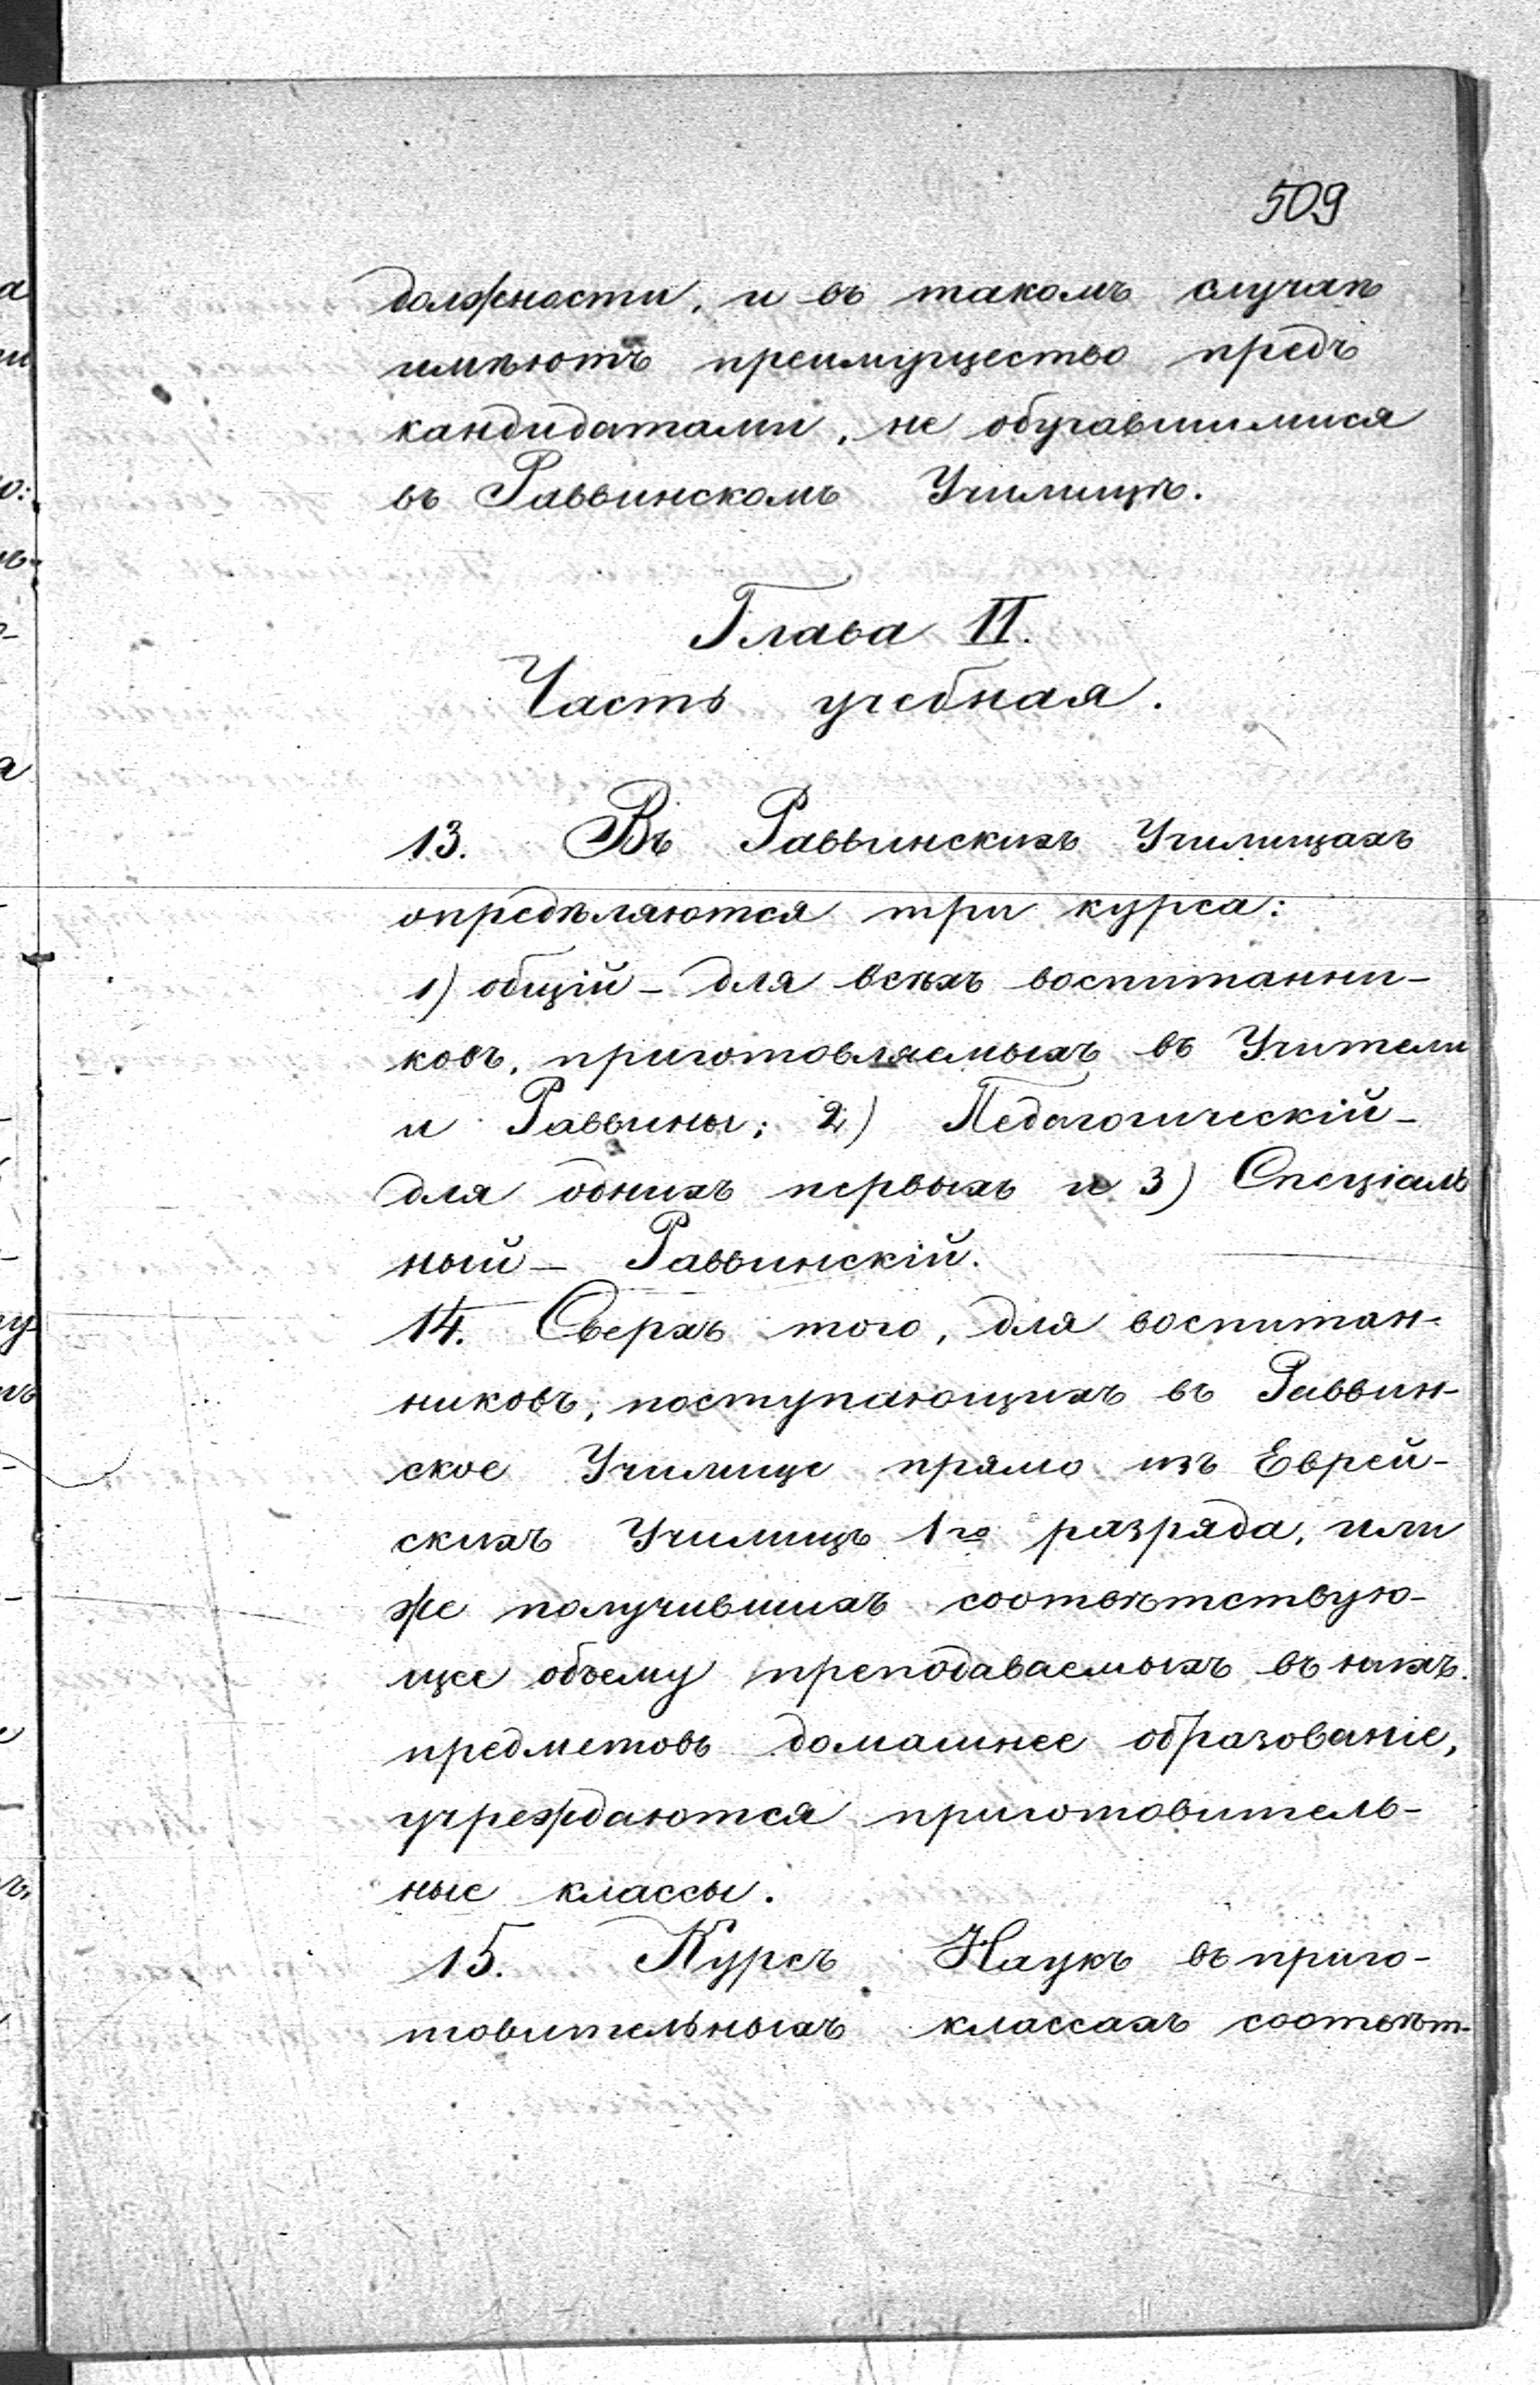 509
должности, и въ такомъ случаѣ
имѣютъ преимущество предъ
кандидатами, не обучавшимися
въ Раввинскомъ Училищѣ.
Глава II.
Часть учебная.
13. Въ Раввинскихъ Училищахъ
опредѣляются три курса:
1) общій – для всѣхъ воспитанни-
ковъ, приготовляемыхъ въ Учители
и Раввины; 2) Педагогическій –
для однихъ первыхъ и 3) Спеціаль
ный – Раввинскій.
14. Сверхъ того, для воспитан-
никовъ, поступающихъ въ Раввин-
ское Училище прямо изъ Еврей-
скихъ Училищъ 1го разряда, или
же получившихъ соотвѣтствую-
щее объему преподаваемыхъ въ нихъ
предметовъ домашнее образованіе,
учреждаются приготовитель-
ные классы.
15. Курсъ Наукъ въ приго-
товительныхъ классахъ соотвѣт-